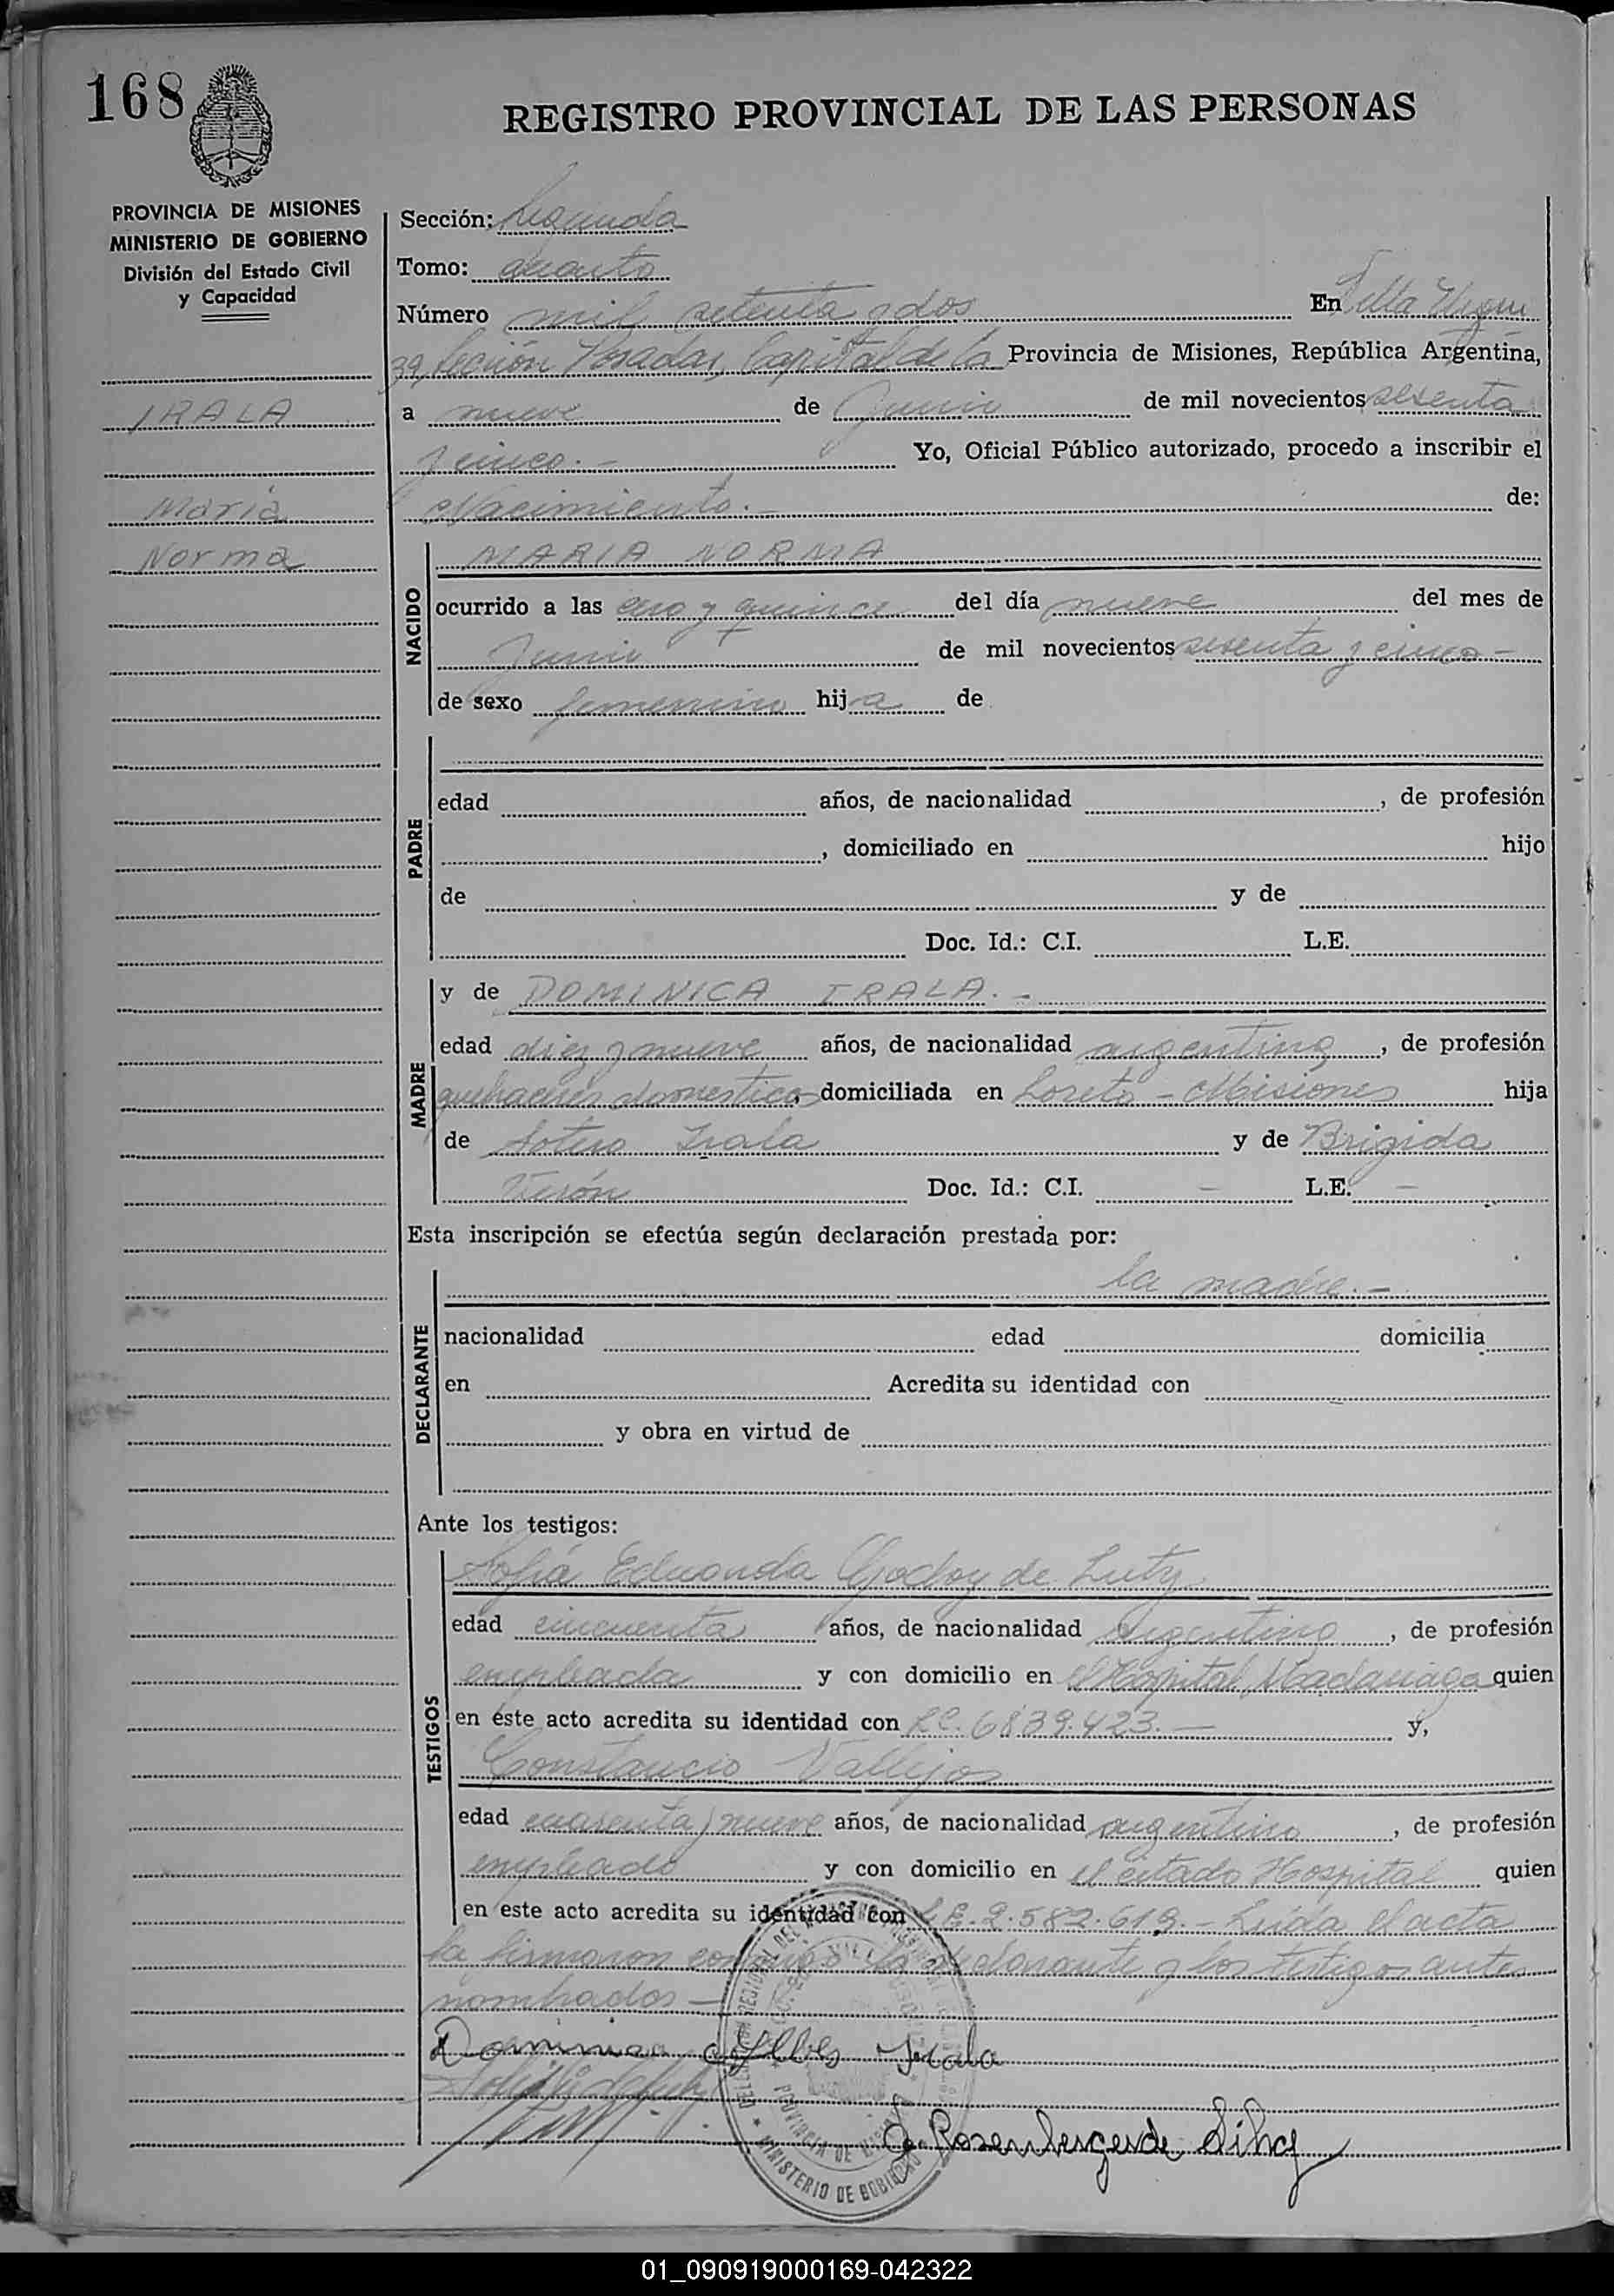 168
REGISTRO PROVINCIAL DE LAS PERSONAS
PROVINCIA DE MISIONES
MINISTERIO DE GOBIERNO
División del Estado Civil
y Capacidad
IRALA
Maria
Norma
Sección: Segunda
Tomo: cuarto
Número mil setenta y dos En Villa Urqui
za, Sección Posadas, Capital de la Provincia de Misiones, República Argentina,
a nueve de Junio de mil novecientos sesenta
y cinco.- Yo, Oficial Público autorizado, procedo a inscribir el
Nacimiento.- de:
NACIDO
MARIA NORMA
ocurrido a las cero y quince del día nueve del mes de
Junio de mil novecientos sesenta y cinco-
de sexo femenino hija de
PADRE
edad años, de nacionalidad , de profesión
, domiciliado en hijo
de y de
Doc. Id.: C.I. L.E.
MADRE
y de DOMINICA IRALA.-
edad diez y nueve años, de nacionalidad argentina, de profesión
quehaceres domesticos, domiciliada en Loreto - Misiones hija
de Sotero Irala y de Brigida
Verón Doc. Id.: C.I. - L.E. -
Esta inscripción se efectúa según declaración prestada por:
DECLARANTE
la madre.-
nacionalidad edad domicilia
en Acredita su identidad con
y obra en virtud de
Ante los testigos:
TESTIGOS
Sofia Eduarda Godoy de Lutz
edad cincuenta años, de nacionalidad argentina, de profesión
empleada y con domicilio en el Hospital Madariaga quien
en éste acto acredita su identidad con L.C. 6839.423.- y,
Constancio Vallejos
edad cuarenta y nueve años, de nacionalidad argentino, de profesión
empleado y con domicilio en el citado Hospital quien
en este acto acredita su identidad con L.E. 2.582.619.- Leida el acta
la firmaron conmigo la declarante y los testigos antes
nombrados-
Dominica Irala
MINISTERIO DE GOBIERNO
PROVINCIA DE MISIONES
Rosenberger de Silva
01_090919000169-042322